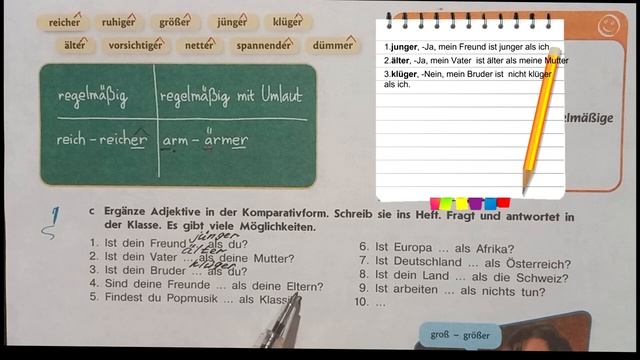 reicher ruhiger größer jünger klüger
älter vorsichtiger netter spannender dümmer
regelmäßig regelmäßig mit Umlaut
reich – reicher arm – ärmer
1.junger, -Ja, mein Freund ist junger als ich.
2.älter, -Ja, mein Vater ist älter als meine Mutter
3.klüger, -Nein, mein Bruder ist nicht klüger
als ich.
elmäßige
c Ergänze Adjektive in der Komparativform. Schreib sie ins Heft. Fragt und antwortet in
der Klasse. Es gibt viele Möglichkeiten.
jünger
1. Ist dein Freund ... als du?
älter
2. Ist dein Vater ... als deine Mutter?
klüger
3. Ist dein Bruder ... als du?
4. Sind deine Freunde ... als deine Eltern?
5. Findest du Popmusik ... als Klassi
6. Ist Europa ... als Afrika?
7. Ist Deutschland ... als Österreich?
8. Ist dein Land ... als die Schweiz?
9. Ist arbeiten ... als nichts tun?
10. ...
groß – größer